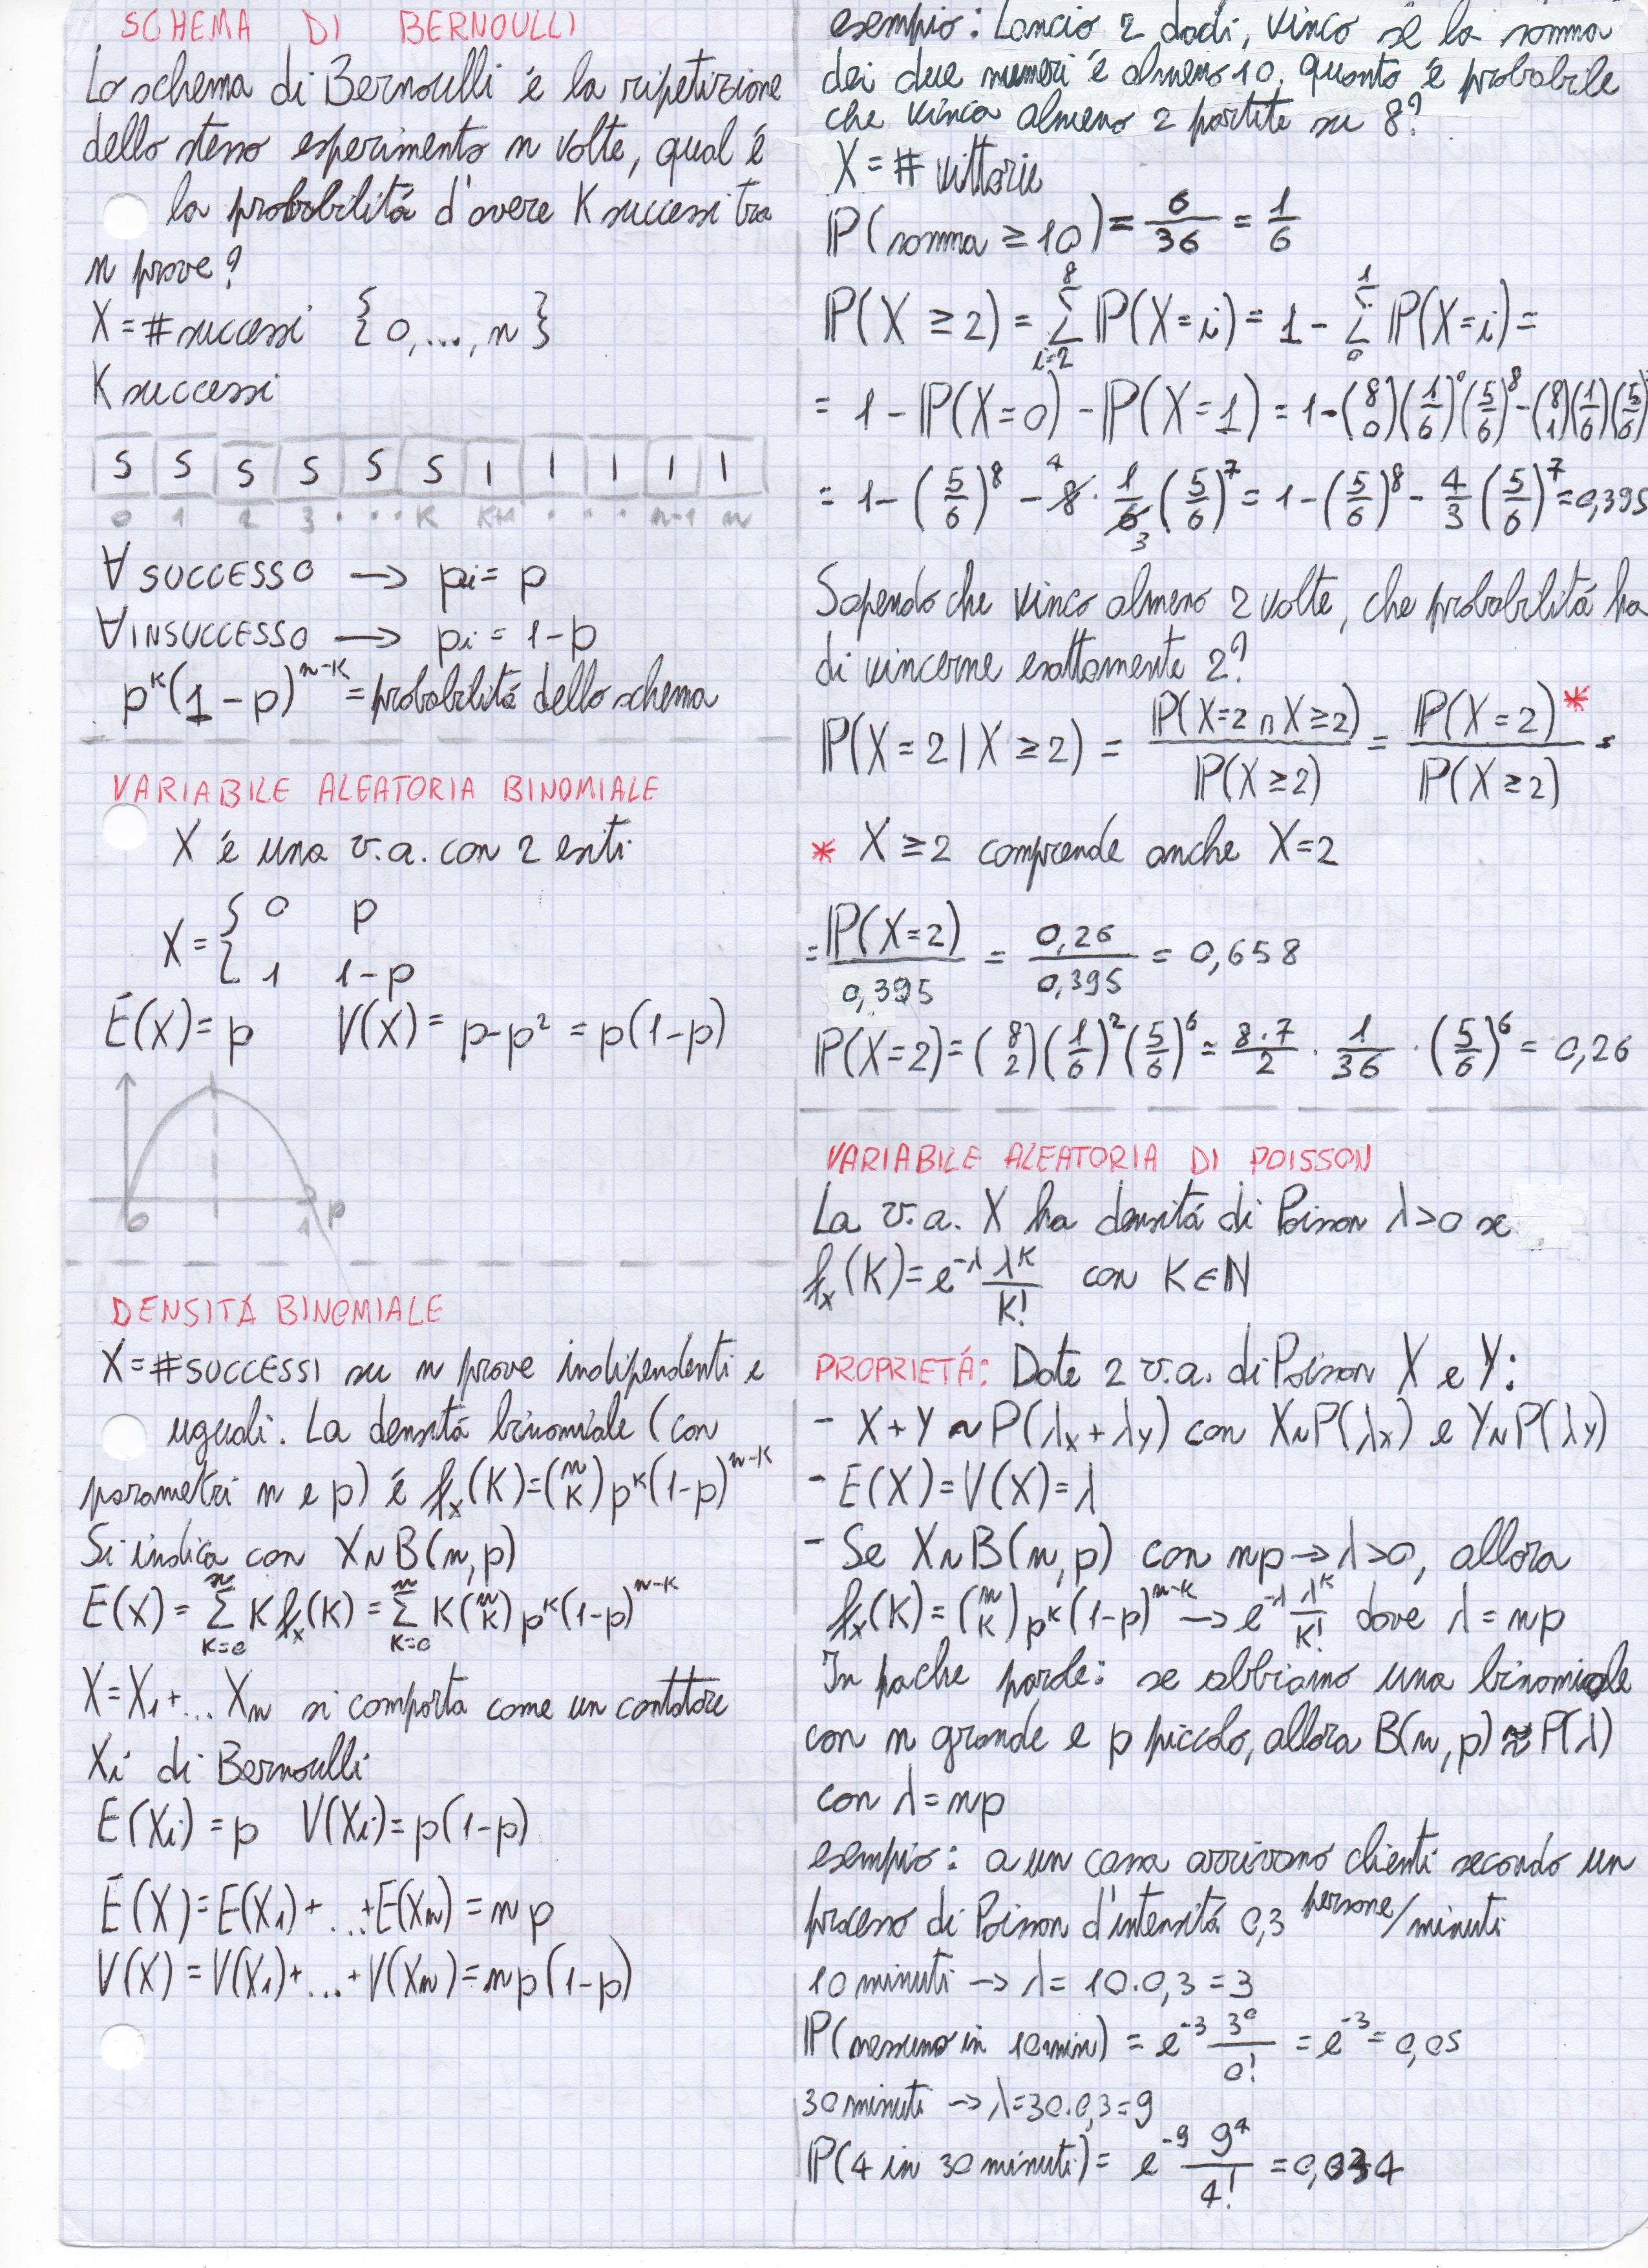 SCHEMA DI BERNOULLI
Lo schema di Bernoulli é la ripetizione
dello stesso esperimento n volte, qual é
la probabilitá d'avere K successi tra
n prove?
X = # successi {0,...,n}
K successi
S S S S S S I I I I I
0 1 2 3 · · · K K+1 · · · n-1 n
∀ SUCCESSO → pi = p
∀ INSUCCESSO → pi = 1-p
p^K(1-p)^(n-K) = probabilitá dello schema
VARIABILE ALEATORIA BINOMIALE
X é una v.a. con 2 esiti
X = { 0 p
1 1-p
E(X) = p V(X) = p-p² = p(1-p)
0 1 p
DENSITÁ BINOMIALE
X = #SUCCESSI su n prove indipendenti e
uguali. La densitá binomiale (con
parametri n e p) é f_x(K) = (n K) p^K (1-p)^(n-K)
Si indica con X~B(n,p)
E(X) = Σ_(K=0)^n K f_x(K) = Σ_(K=0)^n K (n K) p^K (1-p)^(n-K)
X = X₁+... Xn si comporta come un contatore
Xi di Bernoulli
E(Xi) = p V(Xi) = p(1-p)
E(X) = E(X₁)+...+E(Xn) = np
V(X) = V(X₁)+...+V(Xn) = np(1-p)
esempio: Lancio 2 dadi, vinco se la somma
dei due numeri é almeno 10. quanto é probabile
che vinca almeno 2 partite su 8?
X = # vittorie
P(somma ≥ 10) = 6/36 = 1/6
P(X ≥ 2) = Σ_(i=2)^8 P(X=i) = 1 - Σ_0^1 P(X=i) =
= 1 - P(X=0) - P(X=1) = 1 - (8 0)(1/6)^0(5/6)^8 - (8 1)(1/6)(5/6)^7
= 1 - (5/6)^8 - 8 4 · 1/6 3 (5/6)^7 = 1 - (5/6)^8 - 4/3 (5/6)^7 = 0,395
Sapendo che vinco almeno 2 volte, che probabilitá ho
di vincerne esattamente 2?
P(X=2 | X≥2) = P(X=2 ∩ X≥2)/P(X≥2) = P(X=2)*/P(X≥2) =
* X ≥ 2 comprende anche X=2
= P(X=2)/0,395 = 0,26/0,395 = 0,658
P(X=2) = (8 2)(1/6)²(5/6)^6 = 8·7/2 · 1/36 · (5/6)^6 = 0,26
VARIABILE ALEATORIA DI POISSON
La v.a. X ha densitá di Poisson λ>0 se
f_x(K) = e^(-λ) λ^K/K! con K∈N
PROPRIETÁ: Date 2 v.a. di Poisson X e Y:
- X+Y ~ P(λx+λy) con X~P(λx) e Y~P(λy)
- E(X) = V(X) = λ
- Se X~B(n,p) con np → λ>0, allora
f_x(K) = (n K) p^K (1-p)^(n-K) → e^(-λ) λ^K/K! dove λ = np
In poche parole: se abbiamo una binomiale
con n grande e p piccolo, allora B(n,p) ≈ P(λ)
con λ = np
esempio: a un cassa arrivano clienti secondo un
processo di Poisson d'intensitá 0,3 persone/minuti
10 minuti → λ = 10·0,3 = 3
P(nessuno in 10 min) = e^(-3) 3^0/0! = e^(-3) = 0,05
30 minuti → λ = 30·0,3 = 9
P(4 in 30 minuti) = e^(-9) 9^4/4! = 0,034